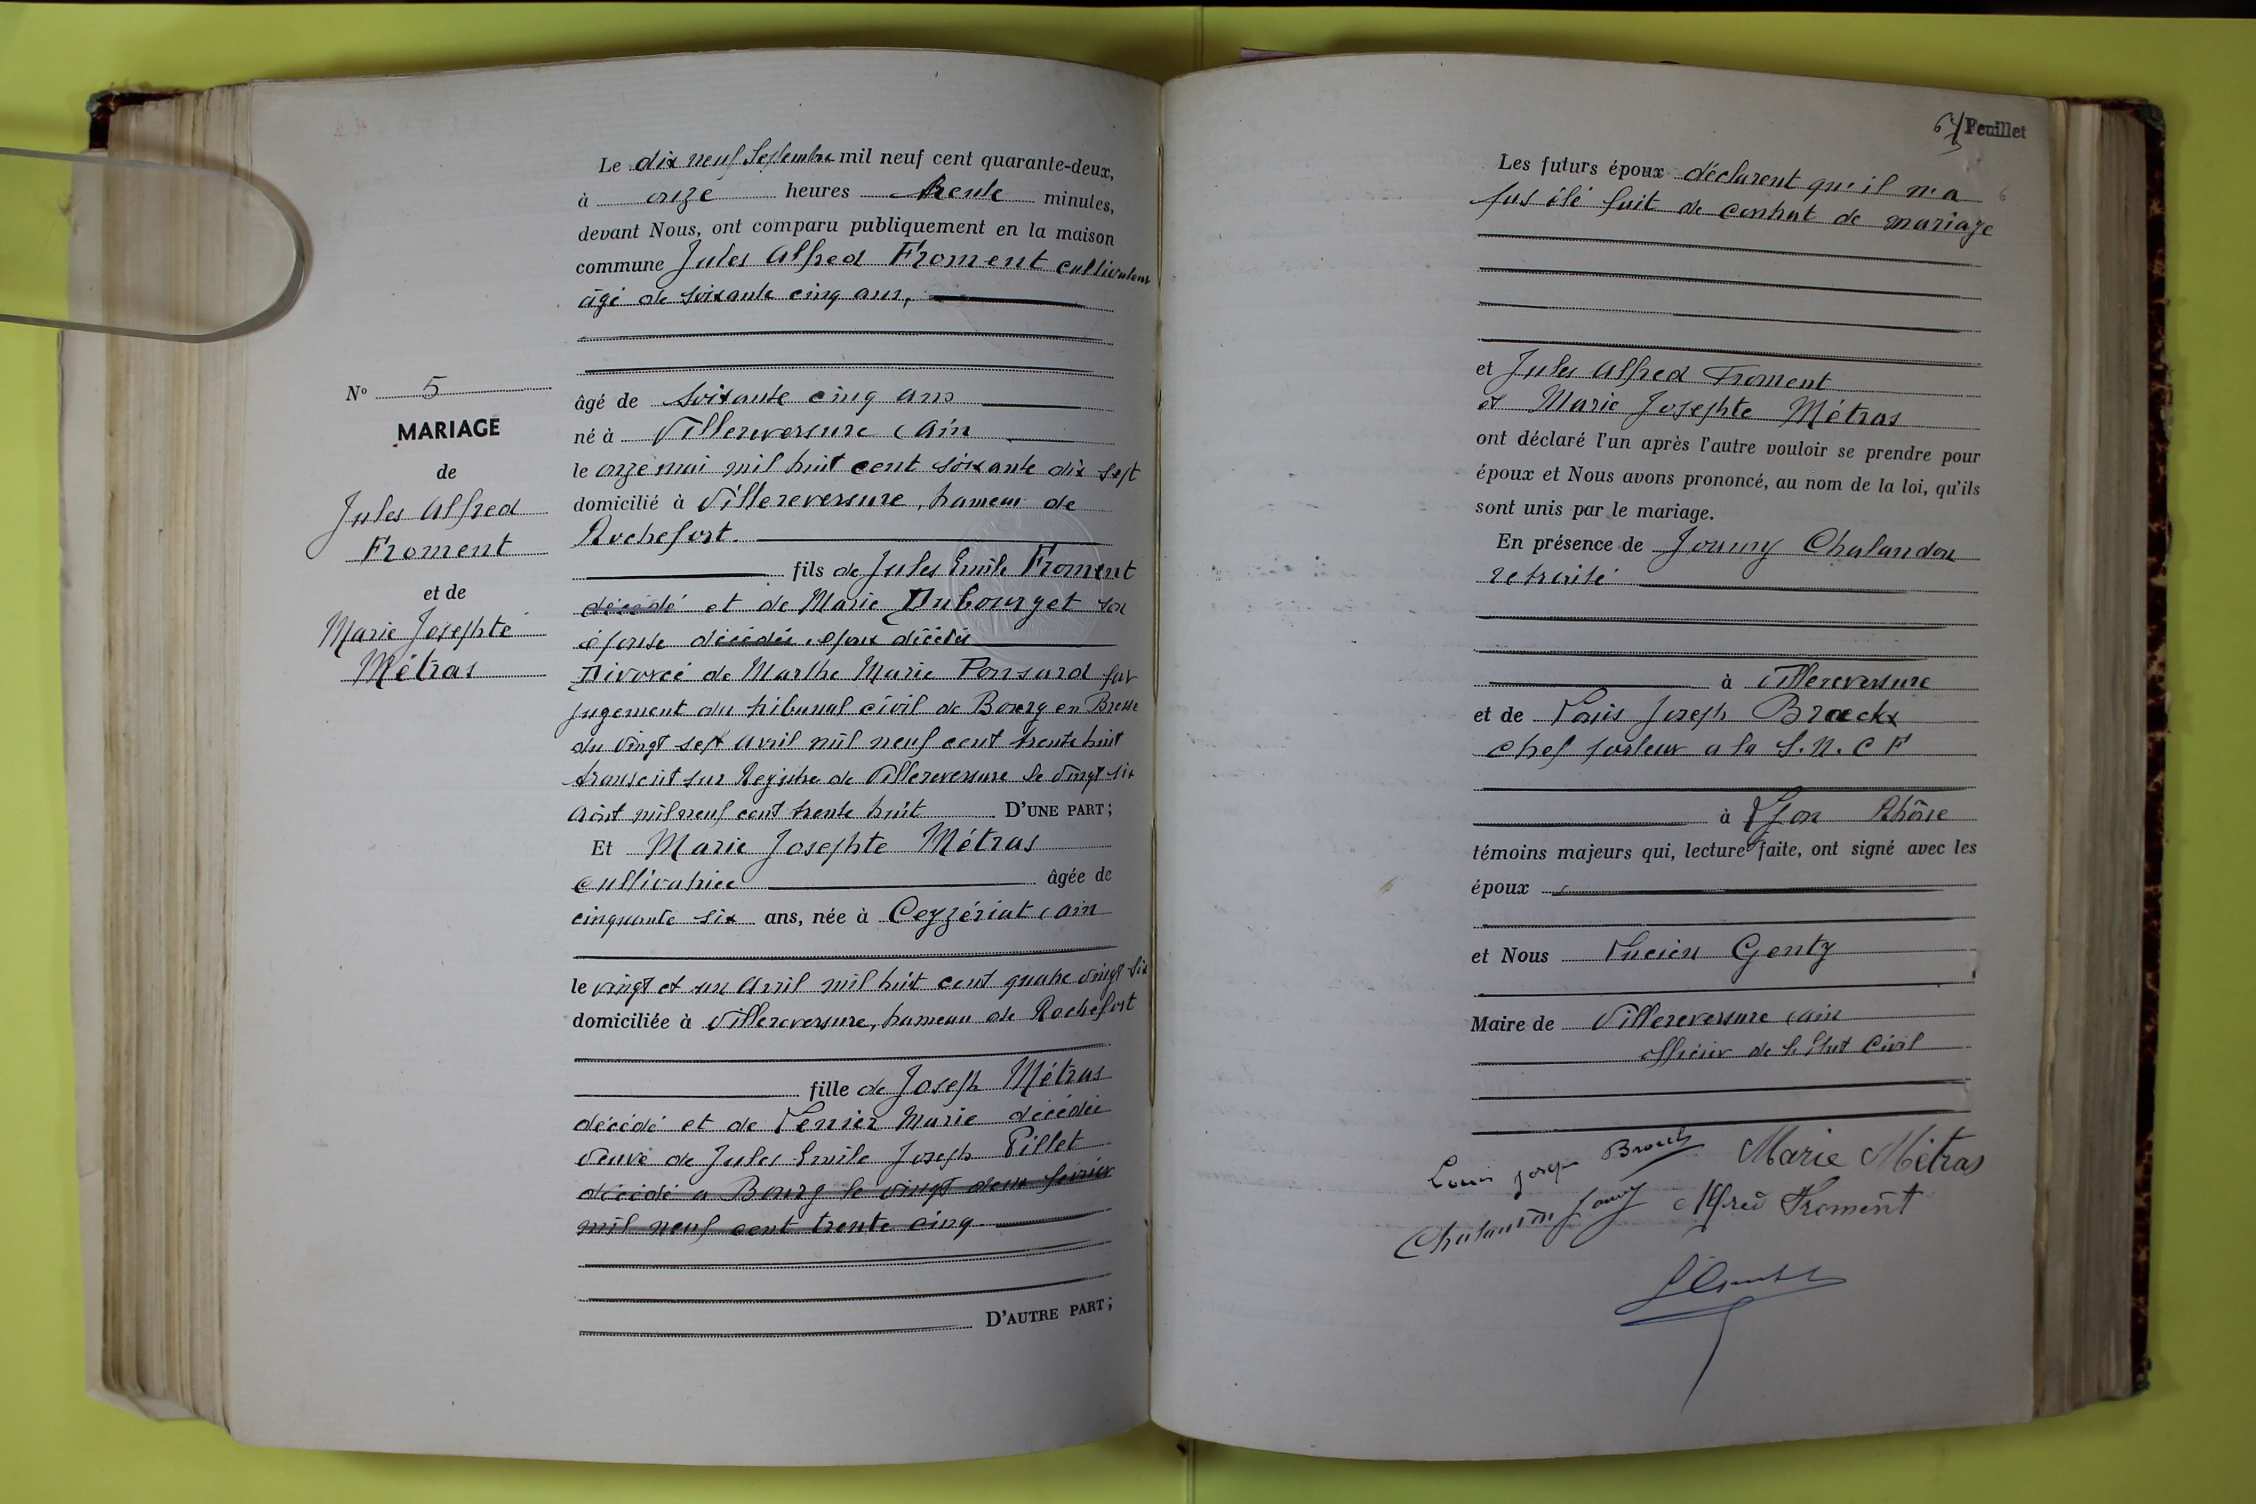 Le dix neuf Septembre mil neuf cent quarante-deux,
à onze heures trente minutes,
devant Nous, ont comparu publiquement en la maison
commune Jules Alfred Froment cultivateur
âgé de soixante cinq ans,
âgé de soixante cinq ans
né à Villereversure (Ain
le onze mai mil huit cent soixante dix sept
domicilié à Villereversure, hameau de
Rochefort.
fils de Jules Emile Froment
décédé et de Marie Dubourget son
épouse décédée, époux décédés
Divorcé de Marthe Marie Ponsard par
jugement du tribunal civil de Bourg en Bresse
du vingt sept avril mil neuf cent trente huit
transcrit sur Registre de Villereversure le vingt six
Août mil neuf cent trente huit D'UNE PART;
Et Marie Josephte Métras
cultivatrice âgée de
cinquante six ans, née à Ceyzériat (Ain
le vingt et un Avril mil huit cent quatre vingt six
domiciliée à Villereversure, hameau de Rochefort
fille de Joseph Métras
décédé et de Marie décédée
veuve de Jules Emile Joseph Pillet
décédé a Bourg le vingt deux février
mil neuf cent trente cinq
D'AUTRE PART;
No 5
MARIAGE
de
Jules Alfred
Froment
et de
Marie Josephte
Métras
Feuillet
Les futurs époux déclarent qu'il n'a
pas été fait de contrat de mariage
et Jules Alfred Froment
et Marie Josephte Métras
ont déclaré l'un après l'autre vouloir se prendre pour
époux et Nous avons prononcé, au nom de la loi, qu'ils
sont unis par le mariage.
En présence de Joanny Chalandon
retraité
à Villereversure
et de Louis Joseph Broeckx
chef porteur a la S.N.C F
à Lyon Rhône
témoins majeurs qui, lecture faite, ont signé avec les
époux
et Nous Lucien Genty
Maire de Villereversure (Ain
officier de l'Etat Civil
Louis Joseph Marie Métras
Chalandon Joanny Alfred Froment